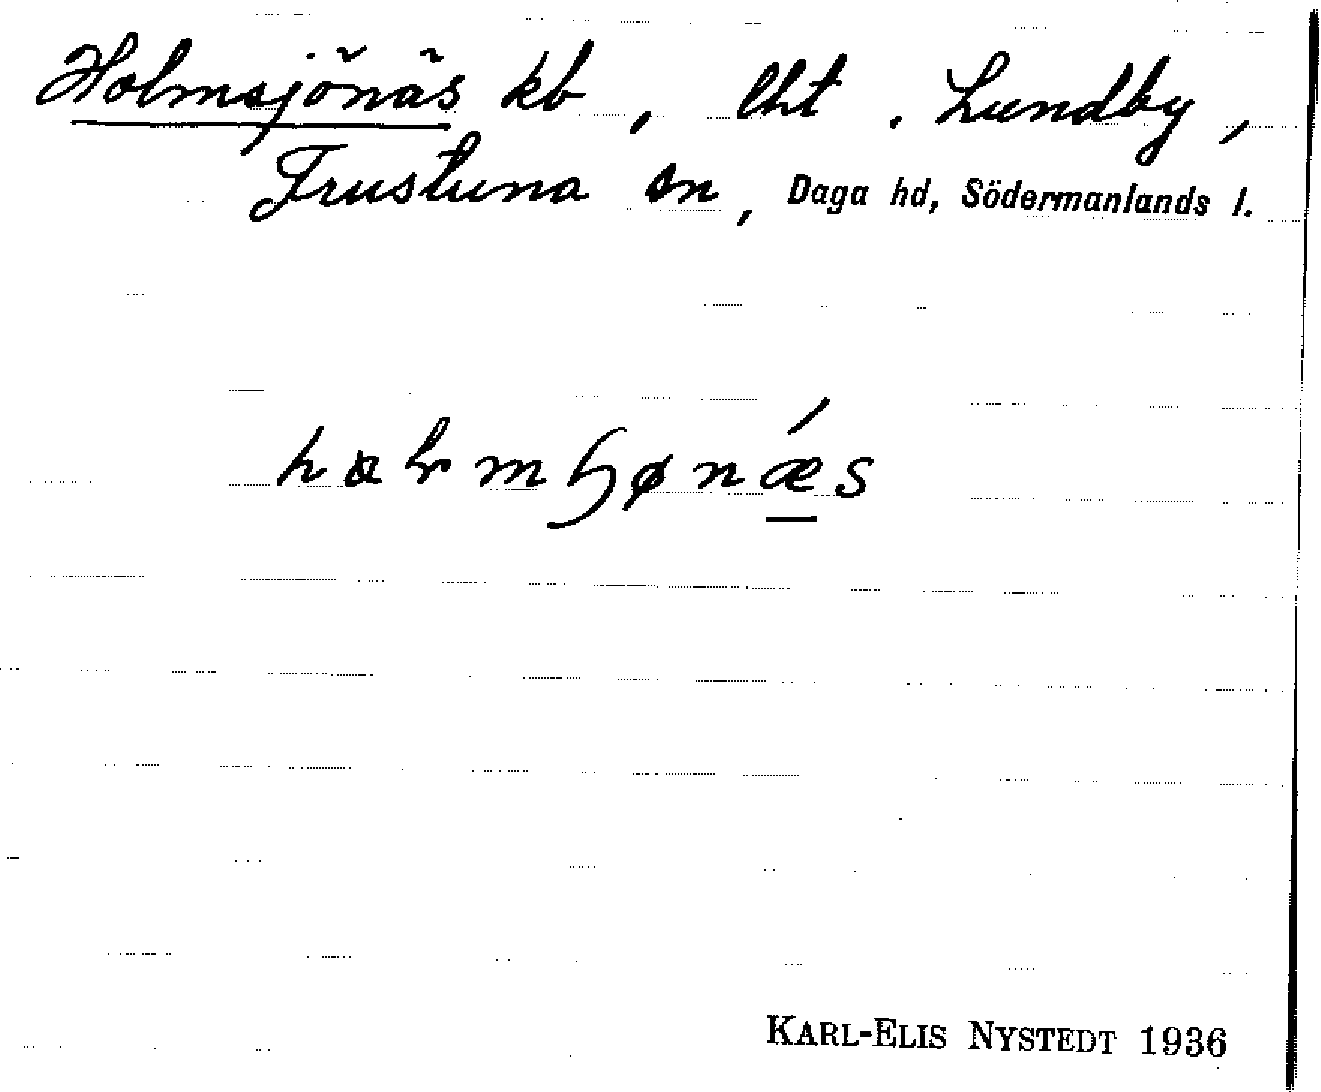 Holmsjönäs kb, lht. Lundby,
Frustuna sn, Daga hd, Södermanlands l.
KARL-ELIS NYSTEDT 1936